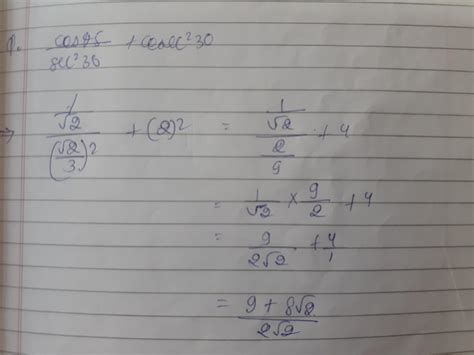 1. cos45/sec²30 + cosec²30
⇒ (1/√2)/(√2/3)² + (2)² = (1/√2)/(2/9) + 4
= 1/√2 × 9/2 + 4
= 9/2√2 + 4/1
= (9 + 8√2)/2√2